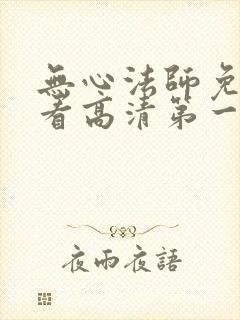 無心法師免
看高清第一
夜雨夜語